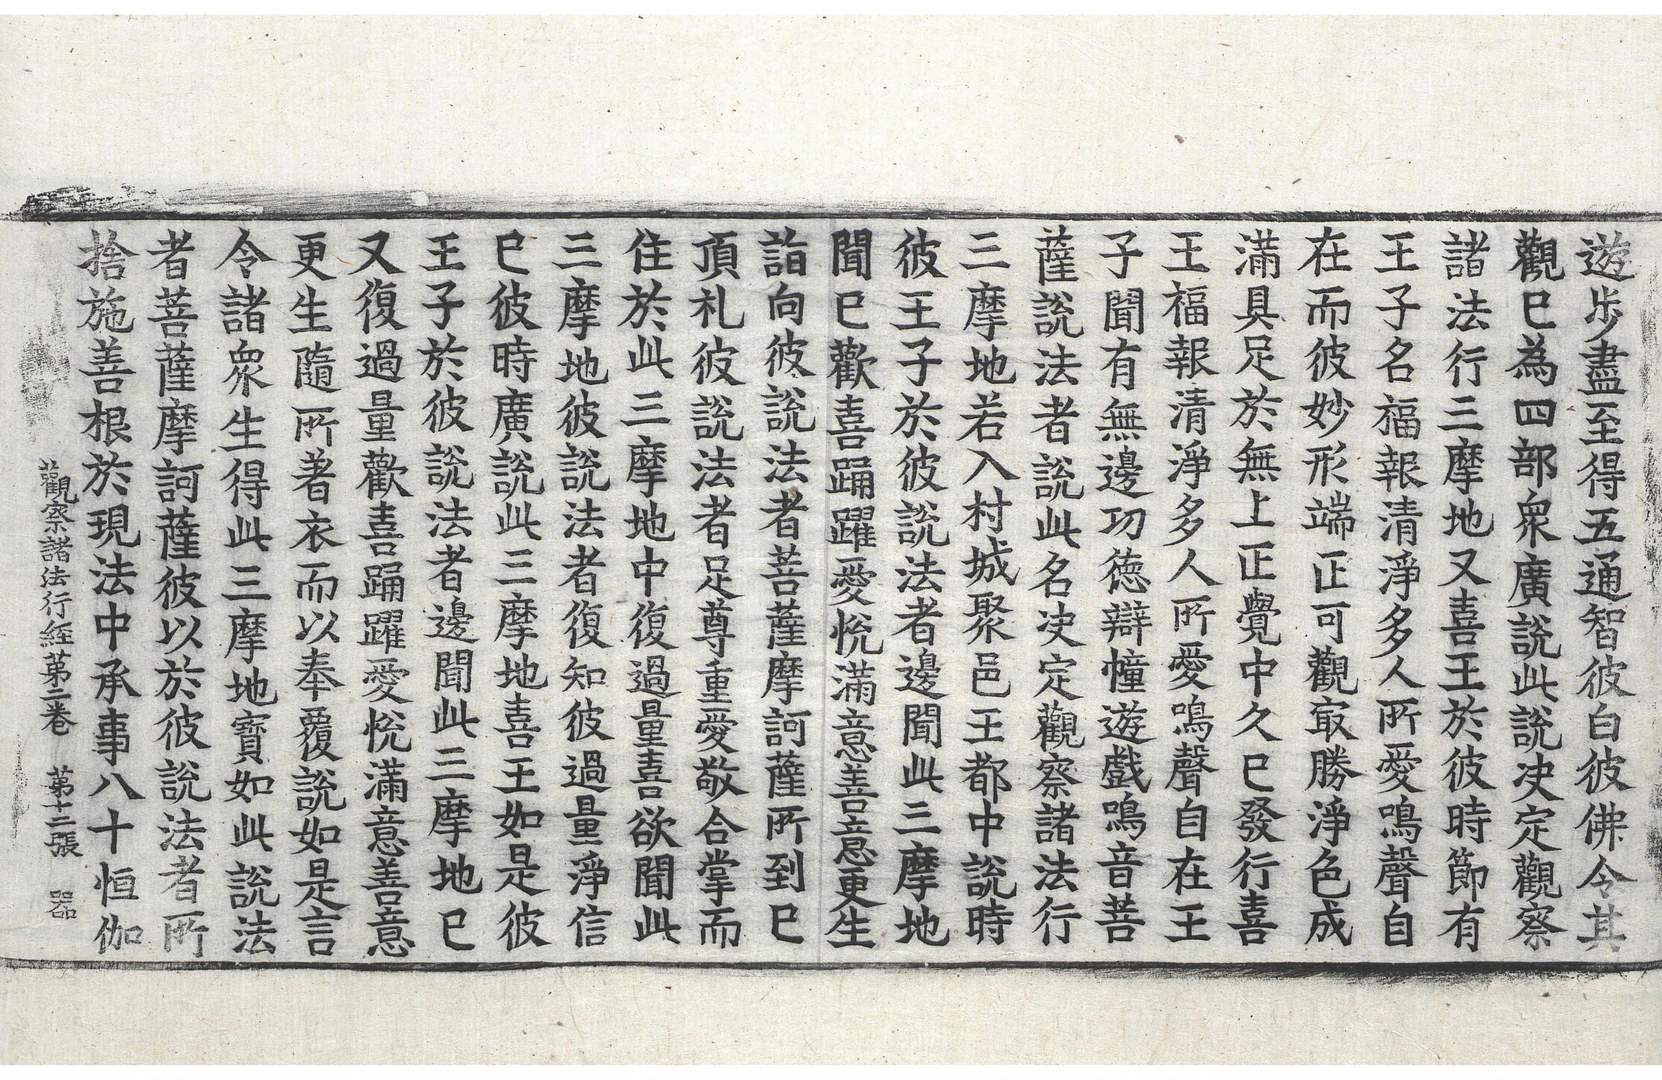 遊步盡至得五通智彼白彼佛令其
觀已為四部衆廣說此說決定觀察
諸法行三摩地又喜王於彼時節有
王子名福報清淨多人所愛鳴聲自
在而彼妙形端正可觀㝡勝淨色成
滿具足於無上正覺中久已發行喜
王福報清淨多人所愛鳴聲自在王
子聞有無邊功德辯幢遊戲鳴音菩
薩說法者說此名決定觀察諸法行
三摩地若入村城聚邑王都中說時
彼王子於彼說法者邊聞此三摩地
聞已歡喜踊躍愛悅滿意善意更生
詣向彼說法者菩薩摩訶薩所到已
頂礼彼說法者足尊重愛敬合掌而
住於此三摩地中復過量喜欲聞此
三摩地彼說法者復知彼過量淨信
已彼時廣說此三摩地喜王如是彼
王子於彼說法者邊聞此三摩地已
又復過量歡喜踊躍愛悅滿意善意
更生隨所著衣而以奉覆說如是言
令諸衆生得此三摩地寶如此說法
者菩薩摩訶薩彼以於彼說法者所
捨施善根於現法中承事八十恒伽
觀察諸法行經第二卷 第十二張 器